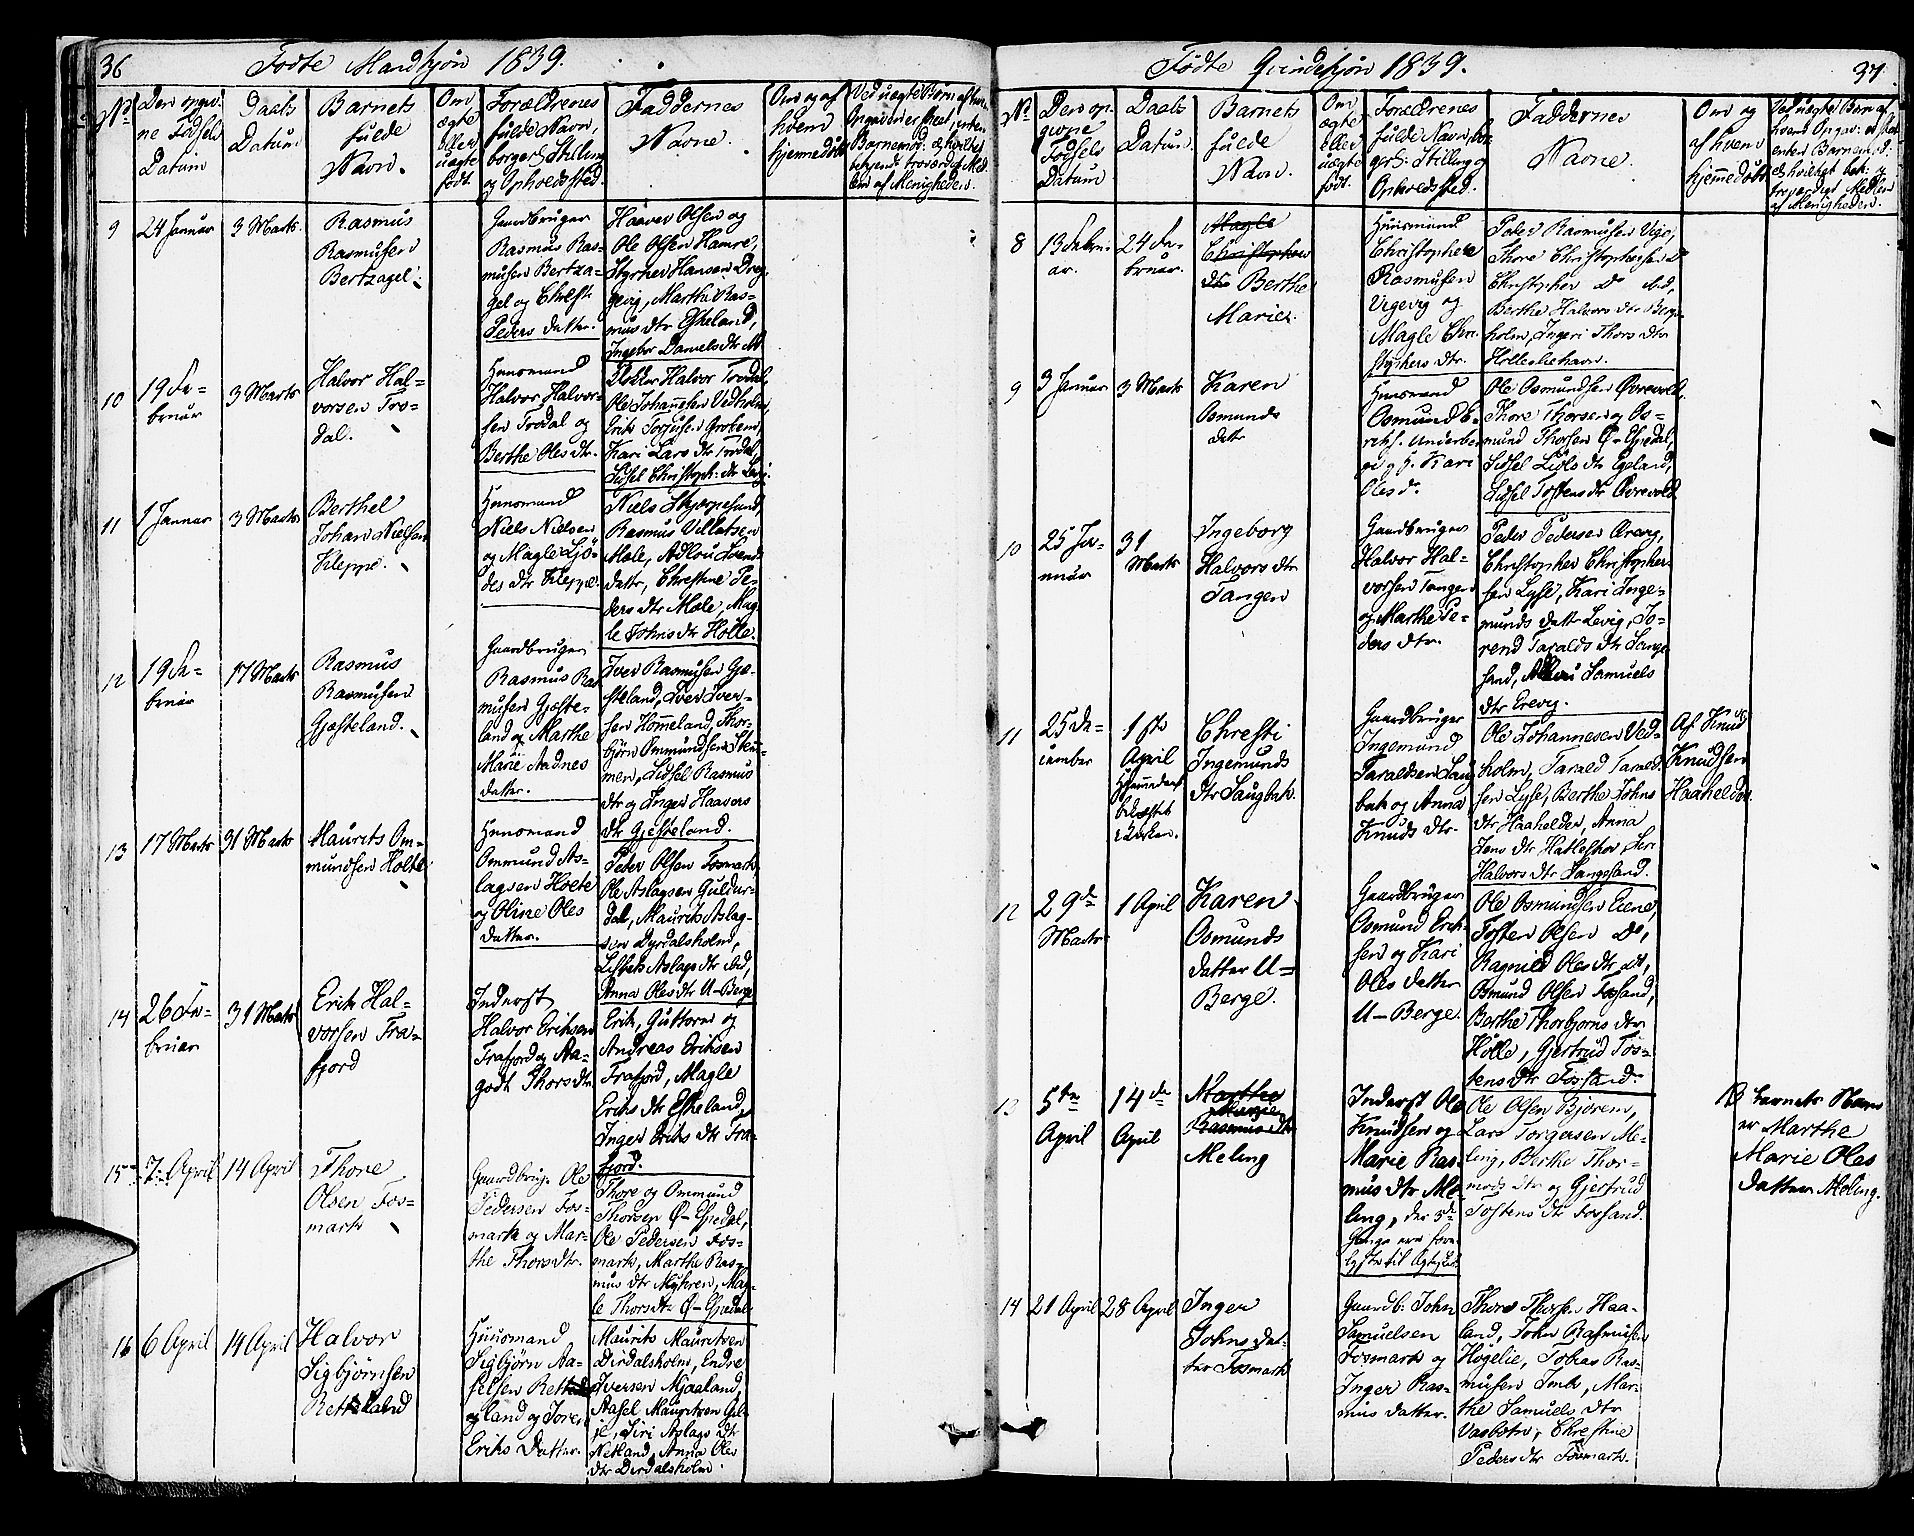 36
Fødte Mandkjøn 1839.
No
Den opgiv-
ne Fødsels
Datum
Daabs
Datum
Barnets
fulde
Navn.
Om
ægte
eller
uægte
født.
Forældrenes
fulde Navn,
borgerl. Stilling
og Opholdssted.
Faddernes
Navne.
Om og af
hvem
hjemmedøbt
9
24 Januar
3 Marts
Rasmus
Rasmusen
Bertzagel.
Gaardbruger
Rasmus Ras-
musen Bertza-
gel og Christi
Peders datter.
Haaver Olsen og
Ole Olsen Hamre,
Styrker Hansen Dreg
gevig, Marthe Ras-
mus dtr Eskeland,
Ingebor Daniels dtr
10
19 Fe-
bruar
3 Marts
Halvor Hal-
vorsen Tro-
dal.
Huusmand
Halvor Halvor-
sen Trodal og
Berthe Oles dtr.
Klokker Halvor Trodal,
Ole Johannesen Vedholm,
Erik Torjusen
Kari Lars dtr Trodal,
Sidsel Christoph: dtr Levig.
11
1 Januar
3 Marts
Berthel
Johan Nielsen
Kleppe.
Huusmand
Niels Nielsen
og Magle Ljö-
des dtr Kleppe.
Niels
Rasmus Villatsen
Mæle, Adlou Svends
datter, Christine Pe-
ders dtr Mæle, Mag-
le Johns dtr Holle.
12
19 Fe-
bruar
17 Marts
Rasmus
Rasmusen
Gjæsteland.
Gaardbruger
Rasmus Ras
musen Gjæste-
land og Marthe
Marie Aadnes
datter.
Iver Rasmusen Gjæ-
steland, Iver Iver-
sen Hommeland, Thor-
björn Ommundsen
men, Sidsel Rasmus
dtr og Inger Haavers
dtr Gjesteland.
13
17 Marts
31 Marts
Maurits Om-
mundsen Holte
Huusmand
Ommund As-
lagsen Hoete
og Oline Oles
datter.
Peter Olsen Fosmark,
Ole Aslagsen Guldur-
dal, Maurits Aslag-
sen Dyrdalsholm,
Lisbet Aslags dtr ibid,
Anna Oles dtr U-Berge
14
26 Fe-
bruar
31 Marts
Erik Hal-
vorsen Fra-
fjord
Inderst
Halvor Eriksen
Frafjord og Aa-
godt Thors dtr
Erik, Guttorm og
Andreas Eriksen
Frafjord, Magle
Eriks dtr Eskeland,
Inger Eriks dtr Fra-
fjord.
15
7 April
14 April
Thore
Olsen Fos-
mark
Gaardbrug: Ole
Pedersen Fos-
mark og Mar-
the Thors dtr.
Thore og Ommund
Thorsen Ö-Espedal,
Ole Pedersen Fos-
mark, Marthe Ras-
mus dtr Myhren, Mag-
le Thors dtr Ö-Espedal
16
6 April
14 April
Halvor
Sigbjørnsen
Retteland
Huusmand
Sigbjörn Aa-
selsen Rett
land og Joren
Eriks Datter.
Maurits Mauritsen
Dirdalsholm, Endre
Iversen Mjaaland,
Aasel Mauritsen Gil-
je, Siri Aslags Dtr
Netland, Anna Oles
dtr Dirdalsholm.
37
Fødte Qvindekjøn 1839.
No
Den op-
givne
Fødsels
Datum
Daabs
Datum.
Barnets
fulde
Navn.
Om
ægte
eller
uægte
født.
Forældrenes
fulde Navn, bor-
gerl: Stilling og
Opholdssted.
Faddernes
Navne.
Om og
af hvem
hjemmedøbt
8
13 Febru-
ar.
24 Fe-
bruar.
Magle
Christophers
dtr Berthe
Marie.
Huusmand
Christopher
Rasmusen
Vigevig og
Magle Chri-
stophers dtr.
Peder Rasmusen Vige,
Thore Christophersen Do
Christopher Do ibid,
Berthe Halvors dtr Berge-
holm, Ingeri Thors dtr
Hollesbehavn.
9
3 Januar
3 Marts
Karen
Osmunds
datter
Huusmand
Osmund E-
riks. Underber
ge og H. Kari
Oles d.
Ole Osmundsen Øvrevold,
Thore Thorsen og Os-
mund Thorsen Ö-Espedal,
Sidsel Eiels dtr Egeland,
Sidsel Tostens dtr Øvrevold
10
25 Ja-
nuar
31
Marts
Ingeborg
Halvors dtr
Tangen
Gaardbruger
Halvor Hal-
vorsen Tangen
og Marthe Pe-
ders dtr.
Peder Pedersen Ørevig,
Christopher Christopher-
sen Lyse, Kari Inge-
munds datter Levig, To-
rend Taralds dtr Sange
sand, Samuels
dtr Erevig.
11
25 De-
cember
1ste
April
Hjemmedaab
bekræftet
i Kirken.
Christi
Ingemunds
dtr Saugbak.
Gaardbruger
Ingemund
Taraldsen Saug
bak og Anna
Knuds dtr.
Ole Johannesen Ved-
holm, Tarald Tarald-
sen Lyse, Berthe Johns
dtr Haahelder, Anna
Jens dtr Hatleskov, Siri
Halvors dtr Sangesand.
Af Knud
Knudsen
Haahelder.
12
29de
Marts
1 April
Karen
Osmunds
datter U-
Berge.
Gaardbruger
Osmund Erik-
sen og Kari
Oles datter
U-Berge.
Ole Osmundsen Eiene,
Tosten Olsen Do,
Ragnild Oles dtr do,
Osmund Olsen Fossand,
Berthe Thorbjorns dtr
Hölle, Gjertrud Tos-
tens dtr Fossand.
13
5te
April
14de
April
Marthe
Marie
Rasmus dtr
Meling
Inderst Ole
Knudsen og
Marie Ras-
mus dtr Me-
ling, der 3de
Gange ere fore-
lyste til Ægtesk.
Ole Olsen Bjoren,
Lars Torgersen Me-
ling, Berthe Thor-
mods dtr og Gjertrud
Tostens dtr Fossand.
Barnets Navn
er Marthe
Marie Oles
datter Meling.
14
21 April
28 April
Inger
Johns dat-
ter Fosmark
Gaardb: John
Samuelsen
Fosmark og
Inger Ras-
mus datter.
Thore Thorsen Haa-
land, John Rasmusen
Høgelie, Tobias Ras-
musen Imb, Mar-
the Samuels dtr
Vasbotn, Christine
Peders dtr Fosmark.